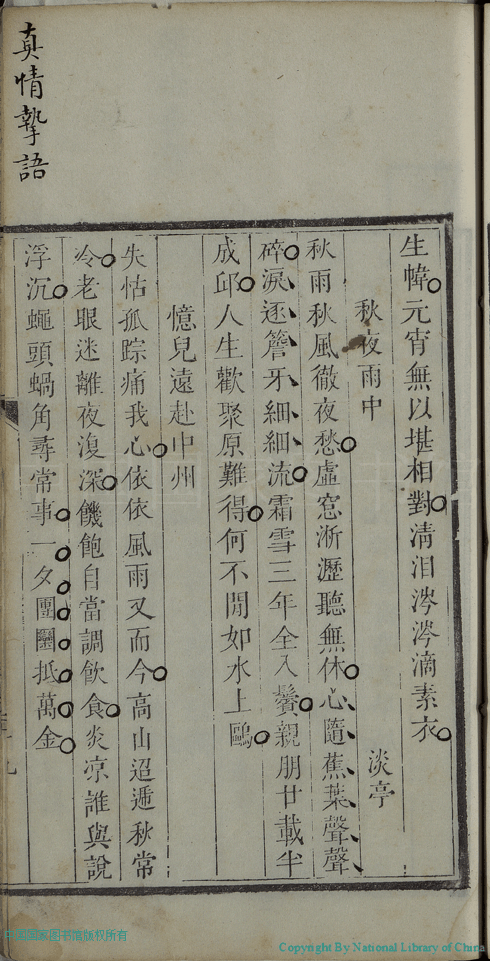 真情摯語
生幃元宵無以堪相對清泪涔涔滴素衣
秋夜雨中
淡亭
秋雨秋風徹夜愁虛窓淅瀝聽無休心隨蕉葉聲聲
碎淚逐簷牙細細流霜雪三年全入鬢親朋廿載半
成邱人生歡聚原難得何不閒如水上鷗
憶兒遠赴中州
失怙孤踪痛我心依依風雨又而今高山迢遞秋常
冷老眼迷離夜復深饑飽自當調飲食炎凉誰與說
浮沉蠅頭蝸角尋常事一夕團圞抵萬金
中国国家图书馆版权所有
Copyright By National Library of China